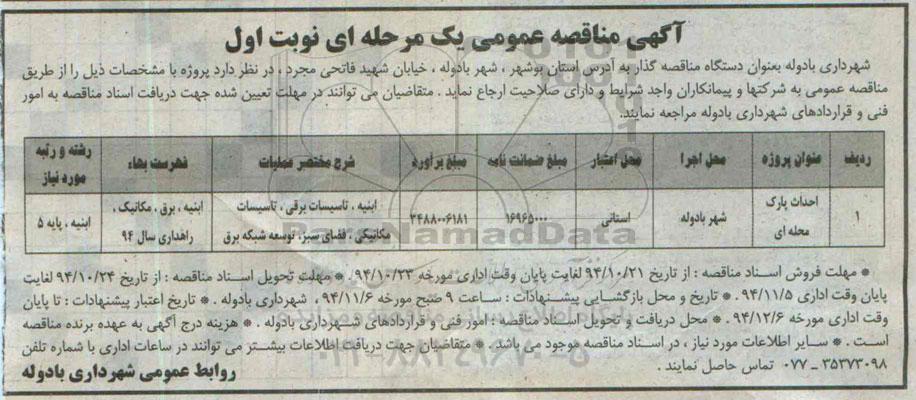 آگهی مناقصه عمومی یک مرحله ای نوبت اول
شهرداری بادوله بعنوان دستگاه مناقصه گذار به آدرس استان بوشهر ، شهر بادوله ، خیابان شهید فاتحی مجرد ، در نظر دارد پروژه با مشخصات ذیل را از طریق
مناقصه عمومی به شرکتها و پیمانکاران واجد شرایط و دارای صلاحیت ارجاع نماید . متقاضیان می توانند در مهلت تعیین شده جهت دریافت اسناد مناقصه به امور
فنی و قراردادهای شهرداری بادوله مراجعه نمایند.
ردیف عنوان پروژه محل اجرا محل اعتبار مبلغ ضمانت نامه مبلغ برآورد شرح مختصر عملیات فهرست بهاء رشته و رتبه مورد نیاز
۱ احداث پارک محله ای شهر بادوله استانی ۱۶۹۶۵۰۰۰ ۳۴۸۸۰۰۶۱۸۱ ابنیه ، تاسیسات برقی ، تاسیسات مکانیکی ، فضای سبز، توسعه شبکه برق ابنیه ، برق ، مکانیک ، راهداری سال ۹۴ ابنیه ، پایه ۵
* مهلت فروش اسناد مناقصه : از تاریخ ۹۴/۱۰/۲۱ لغایت پایان وقت اداری مورخه ۹۴/۱۰/۲۳ . * مهلت تحویل اسناد مناقصه : از تاریخ ۹۴/۱۰/۲۴ لغایت
پایان وقت اداری ۹۴/۱۱/۵ . * تاریخ و محل بازگشایی پیشنهادات : ساعت ۹ صبح مورخه ۹۴/۱۱/۶ ، شهرداری بادوله . * تاریخ اعتبار پیشنهادات : تا پایان
وقت اداری مورخه ۹۴/۱۲/۶ . * محل دریافت و تحویل اسناد مناقصه : امور فنی و قراردادهای شهرداری بادوله . * هزینه درج آگهی به عهده برنده مناقصه
است . * سایر اطلاعات مورد نیاز ، در اسناد مناقصه موجود می باشد . * متقاضیان جهت دریافت اطلاعات بیشتر می توانند در ساعات اداری با شماره تلفن
۳۵۳۷۳۰۹۸ ـ ۰۷۷ تماس حاصل نمایند .
روابط عمومی شهرداری بادوله
ParsNamadData
۰۲۱-۸۸۳۴۹۶۷۰-۵